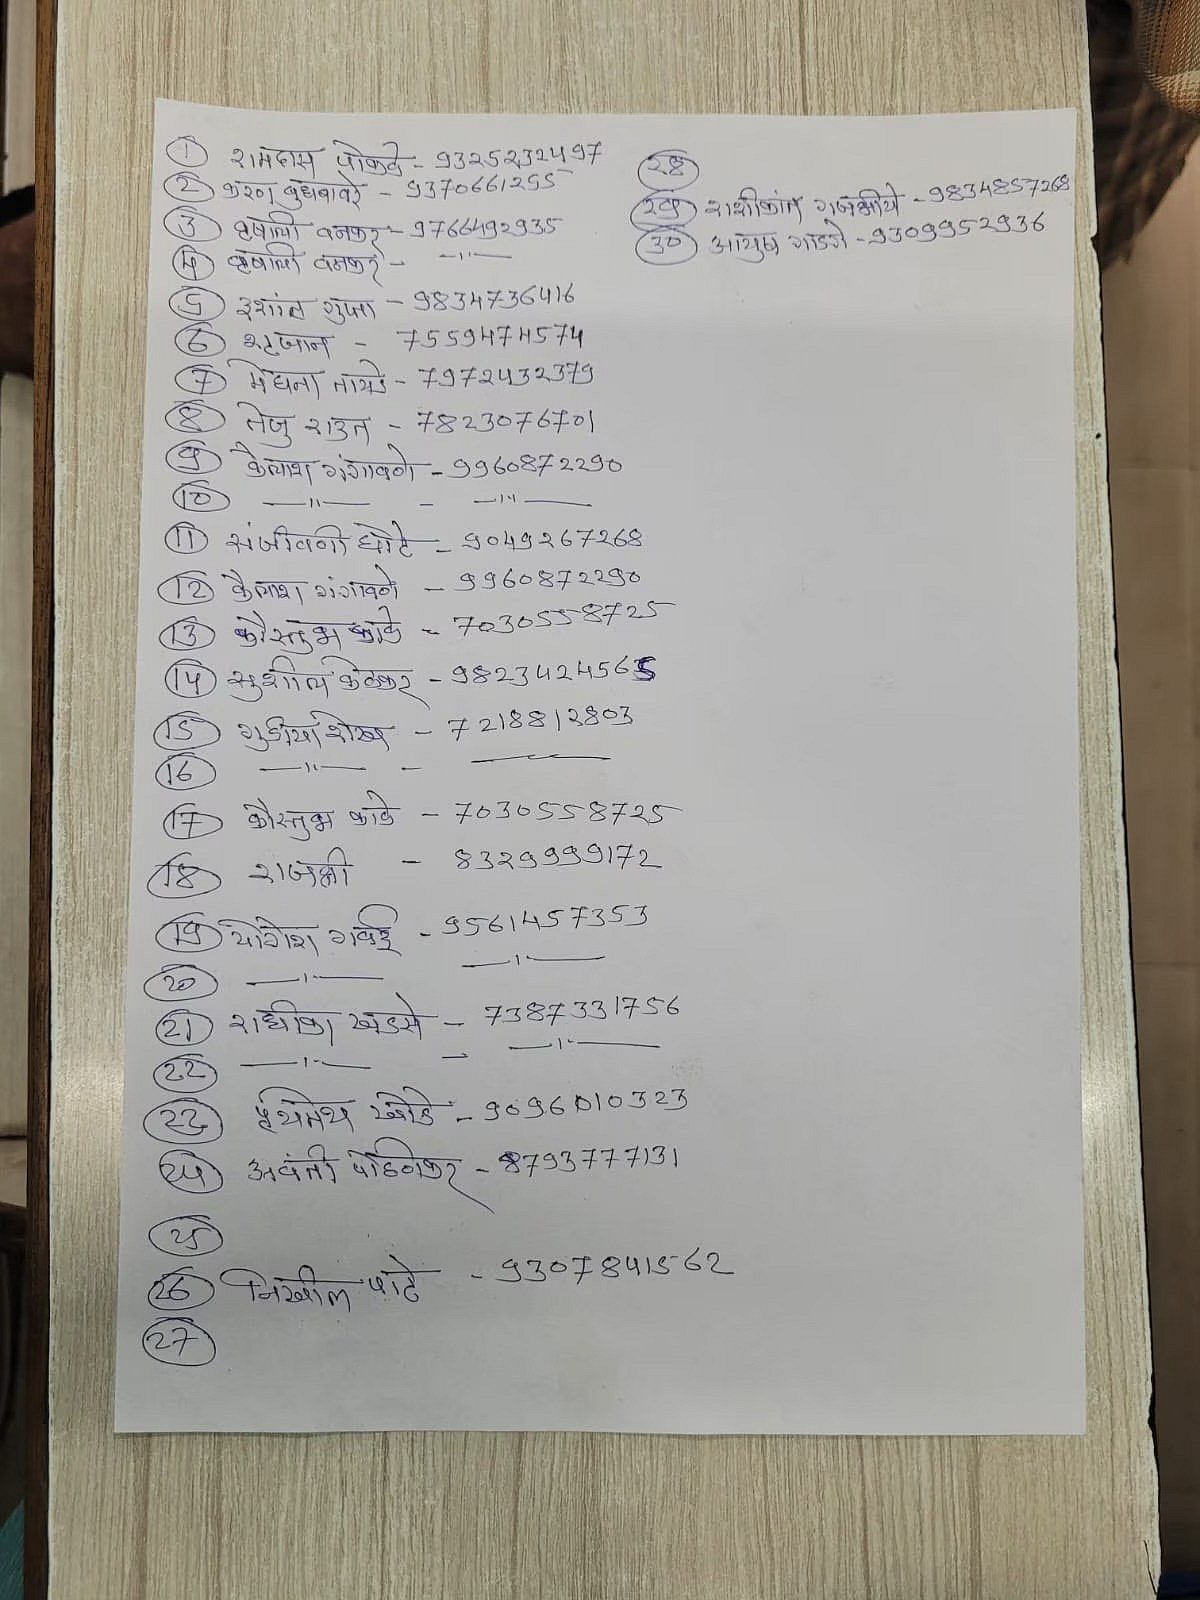 1 रामदास पोकळे - 9325232497
2 करण बुधबावरे - 9370661255
3 वृषाली वनकर - 9766492935
4 वृषाली वनकर - —"—
5 इशांत गुप्ता - 9834736416
6 - 7559474574
7 मेघना तायडे - 7972432379
8 तेजु राउत - 7823076701
9 कैलाश गंगावणे - 9960872290
10 —"— - —"—
11 संजीवनी घोटे - 9049267268
12 कैलाश गंगावणे - 9960872290
13 कौस्तुभ काळे - 7030558725
14 सुशील केळकर - 9823424565
15 गुडीया शेख - 7218812803
16 —"— - ———
17 कौस्तुभ काळे - 7030558725
18 राजश्री - 8329999172
19 योगेश गवई - 9561457353
20 —"— —"—
21 राधीका खडसे - 7387331756
22 —"— - —"—
23 खोडे - 9096010323
24 अवंती पेडणेकर - 8793777131
25
26 निखील पाटे - 9307841562
27
28
29 शशीकांत गजभीये - 9834857268
30 आयुष गाडगे - 9309952936